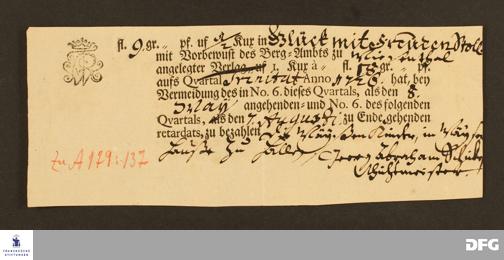 fl. 9. gr. pf. uf ½ Kux in Glück mit Freuden Stoll
mit Vorbewust des Berg-Ambts zu
angelegter Verlag, uf 1. Kux à fl. 18 gr. pf.
aufs Qvartal Trinitat Anno 1726. hat, bey
Vermeidung des in No. 6. dieses Qvartals, als den 8.
May angehenden- und No. 6. des folgenden
Qvartals, als den 7. Augusti zu Ende gehenden
retardats, zu bezahlen Die Kinder, in
zu Halle Georg Abraham
Schichtmeister.
zu A 179:137
FRANCKESCHE
STIFTUNGEN
DFG